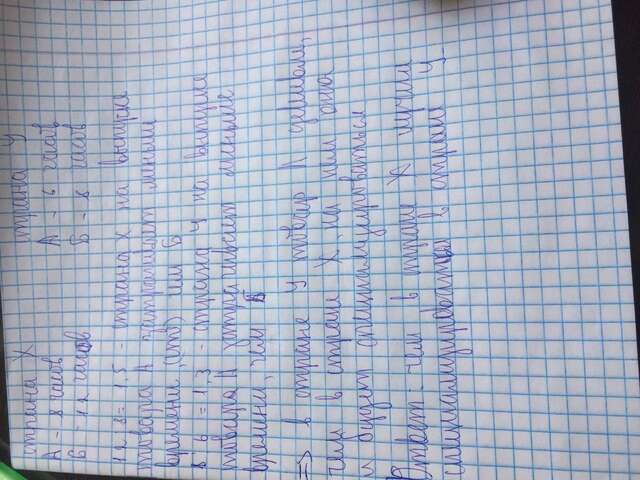 страна X страна У
А - 8 часов А - 6 часов
Б - 12 часов Б - 8 часов
12 : 8 = 1,5 - страна X на выпуске
товара А затрачивает меньше
времени, чем Б
8 : 6 = 1,3 - страна У на выпуске
товара А затрачивает меньше
времени, чем Б
=> в стране У товар А дешевле,
чем в стране X, на нем она
и будет специализироваться
Ответ: чем в стране X лучше
специализироваться в стране У